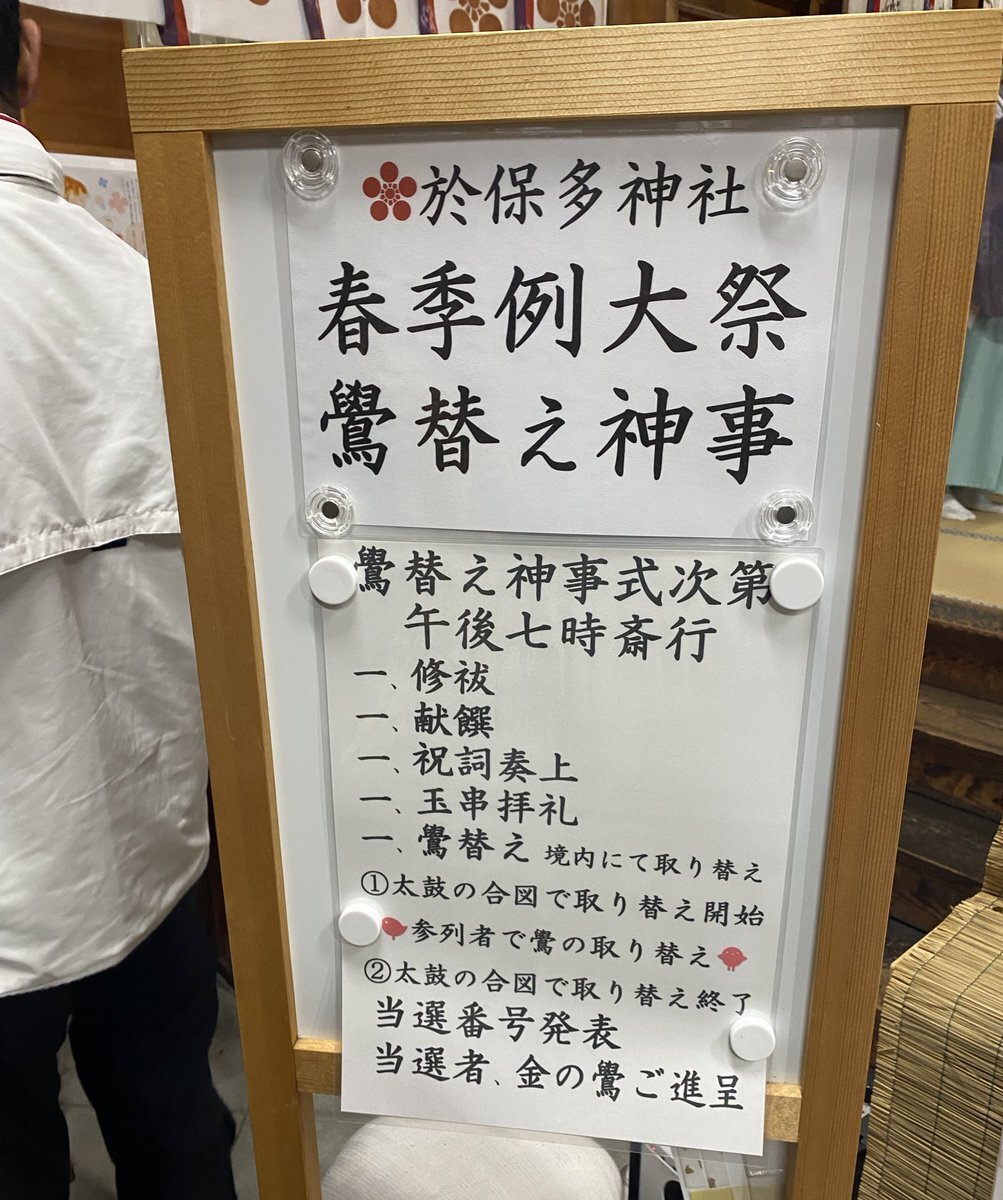 於保多神社
春季例大祭
鷽替え神事
鷽替え神事式次第
午後七時斎行
一、修祓
一、献饌
一、祝詞奏上
一、玉串拝礼
一、鷽替え 境内にて取り替え
①太鼓の合図で取り替え開始
参列者で鷽の取り替え
②太鼓の合図で取り替え終了
当選番号発表
当選者、金の鷽ご進呈